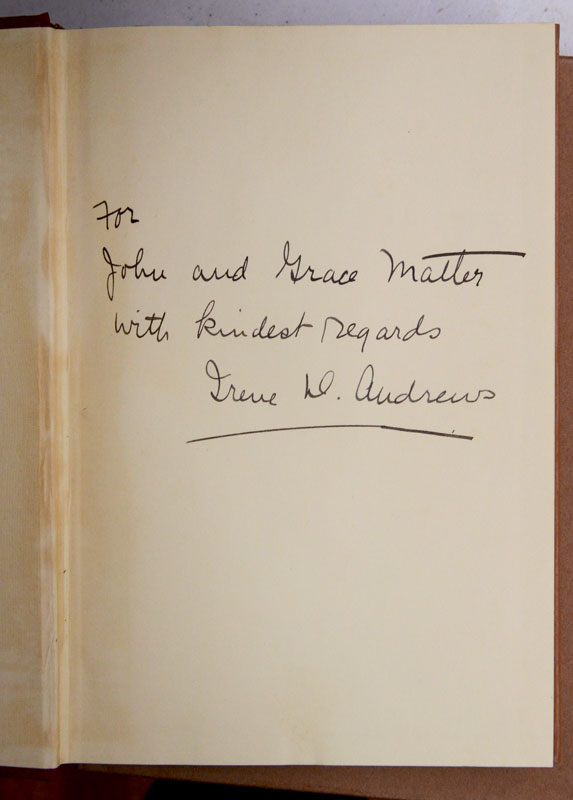 For
John and Grace Matter
with kindest regards
Irene D. Andrews